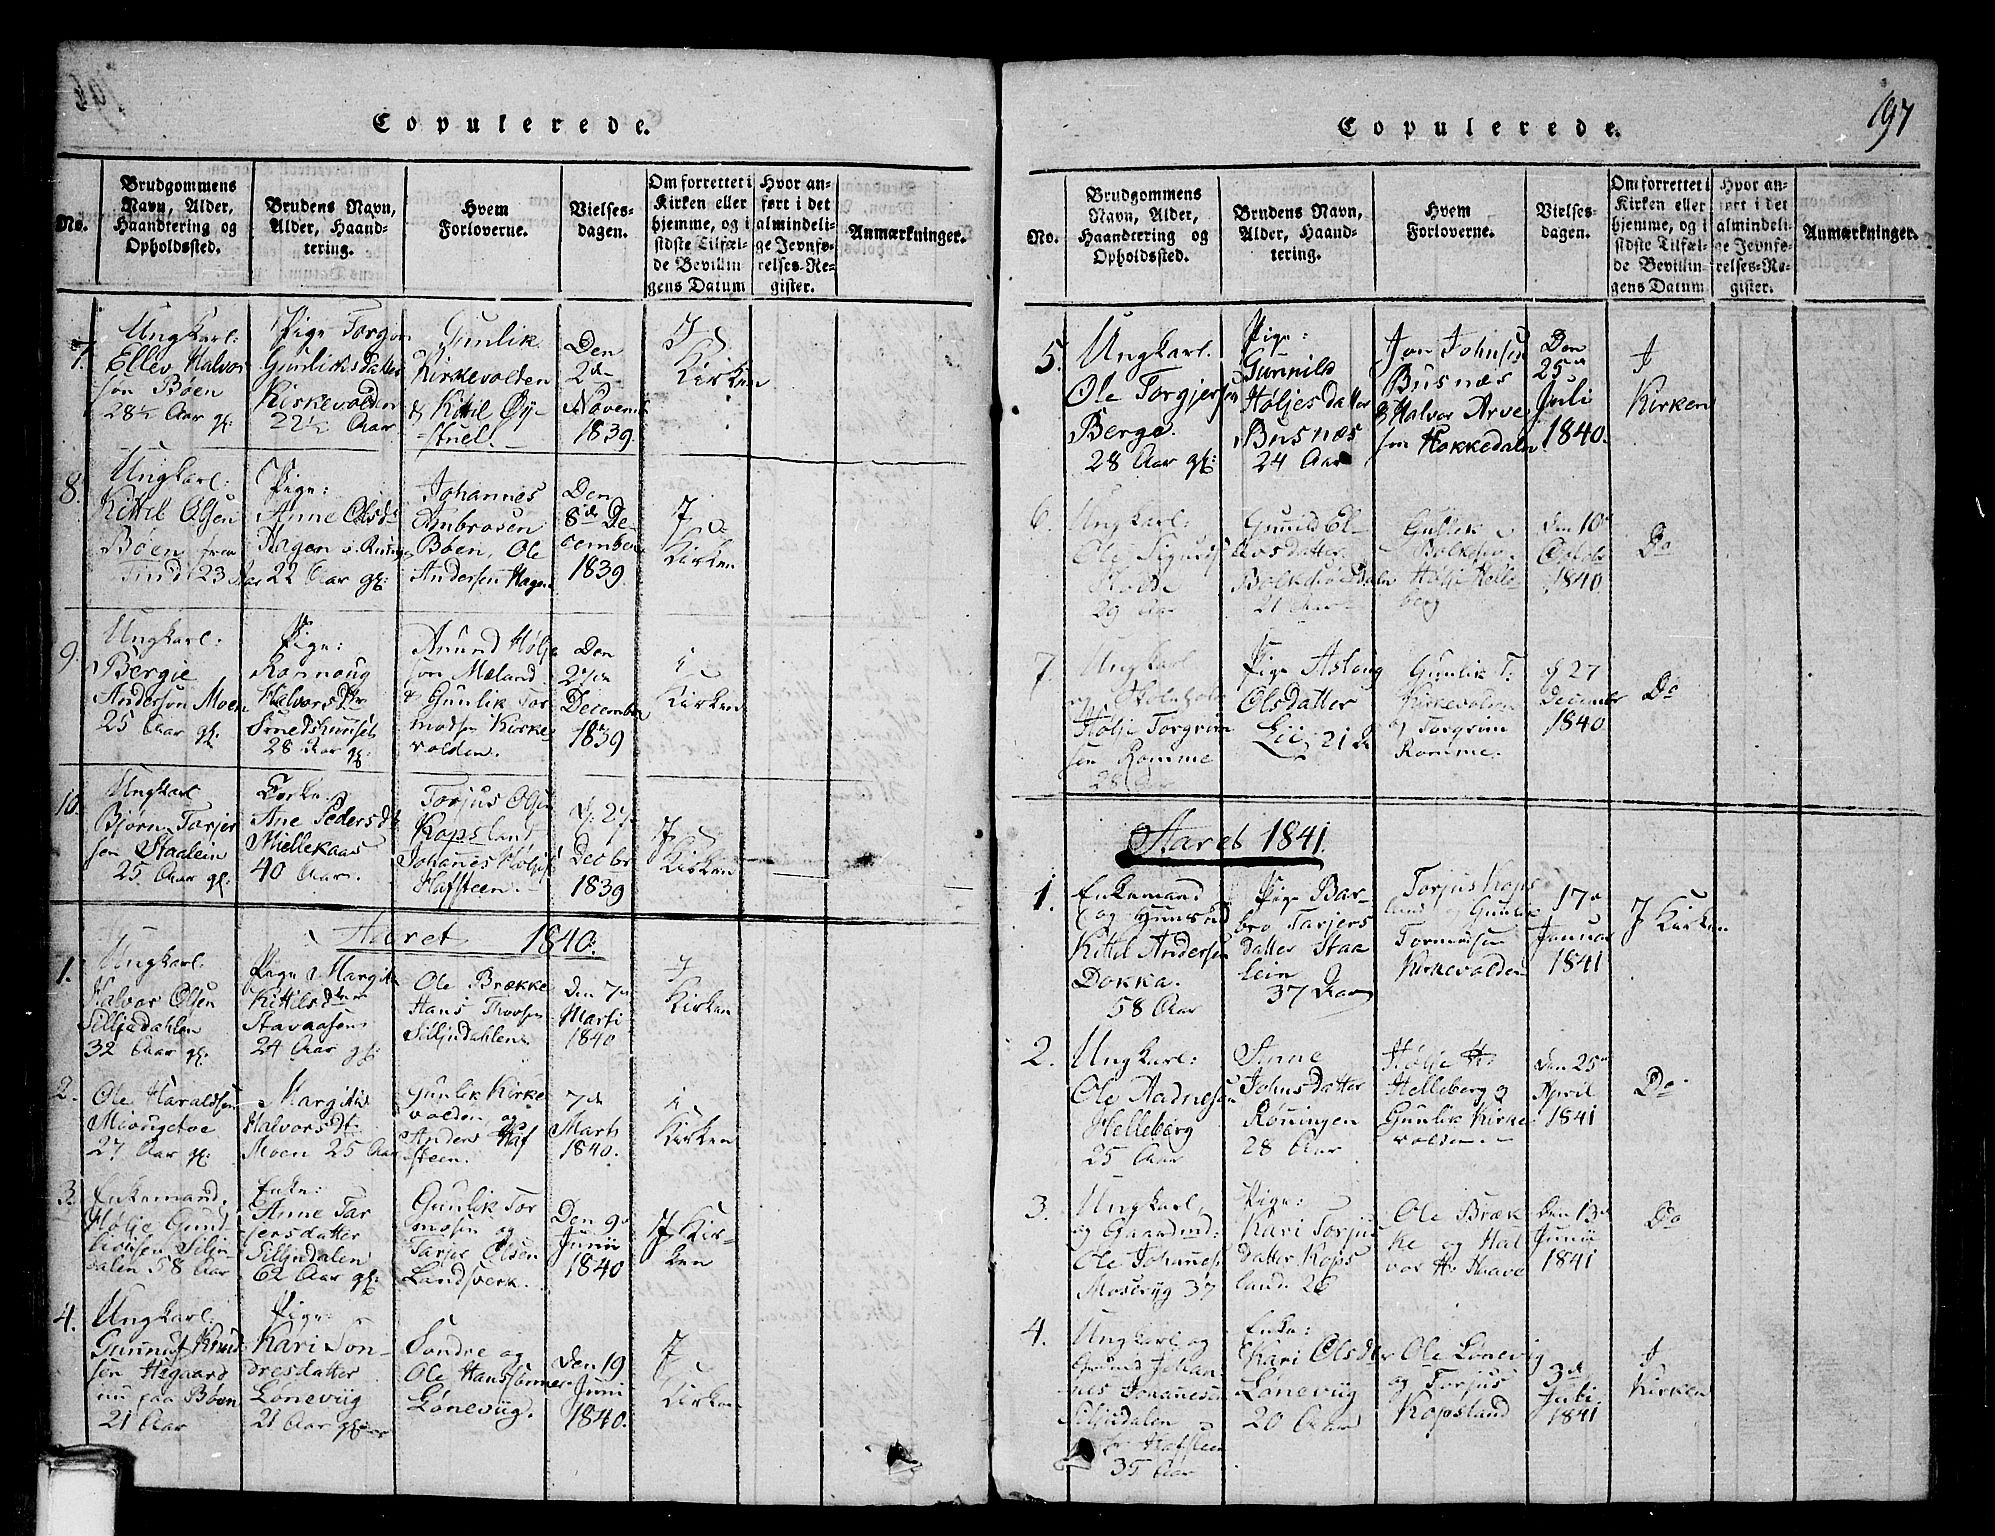 Copulerede.
No.
Brudgommens
Navn, Alder,
Haandtering og
Opholdssted.
Brudens Navn,
Alder, Haand-
tering.
Hvem
Forloverne.
Vielses-
dagen.
Om forrettet i
Kirken eller
hjemme, og i
sidste Tilfæl-
de Bevillin-
gens Datum
Hvor an-
ført i det
almindeli-
ge Jevnfø-
relses-Re-
gister.
Anmærkninger.
7.
Ungkarl:
Ellev Halvor
søn Bøen
28½ Aar gl:
Pige Torgon
Gunliksdatter
Kirkevolden
22½ Aar
Gunlik
Kirkevolden
& Kittil Øy-
stuel.
Den
2den
Novem
1839.
I
Kirken
8.
Ungkarl:
Kittel Olsen
Bøen fra
Tind 23 Aar
Pige:
Anne Olsdr
Hagen
22 Aar gl:
Johannes
Ambrosen
Bøen, Ole
Andersen Hagen
Den
8de De-
cember
1839.
I
Kirken
9.
Ungkarl:
Bergie
Andersøn Moen
25 Aar gl.
Pige:
Ronnoug
Halvorsdtr
28 Aar gl:
Anund Hølje
søn Mæland
& Gunlik Tor
modsen Kirke
volden.
Den
27de
December
1839
i
Kirken
10.
Ungkarl
Bjørn Tarjer
søn Staalein
25 Aar gl:
Ane Pedersdt
Mellekaas
40 Aar.
Torjus Olsen
Kopsland
Johanes Høljes
Hafsteen.
D. 27
Decbr
1839
I
Kirken
Aaret 1840:
1.
Ungkarl
Halvor Olsen
Silljudahlen
32 Aar gl.
Pige Margit
Kittilsdtter
Stavaasen
24 Aar gl:
Ole Brække
Hans Thorsen
Silljudahlen
den 7de
Marti
1840
I
Kirken
2.
Ole Haraldsen
27 Aar gl:
Margit
Halvorsdt.
Moen 25 Aar
Gunlik Kirke
volden og
Anders Haf
steen.
7de
Marts
1840.
i
Kirken
3.
Enkemand.
Hølje Gund
Silju
dalen 58 Aar
Enke:
Anne Tar
jersdatter
Silljudalen
62 Aar gl:
Gunlik Tor
mosen og
Tarje Olsen
Landsverk.
Den 9de
Junii
1840
I Kir-
ken
4.
Ungkarl:
Gunnuf Knud
sen
nu paa Bøen
21 Aar
Pige:
Kari Son-
dresdatter
Lønevüg
21 Aar gl
Sondre og
Ole Hanssønner
Lønevüg.
den 19
Juni
1840.
I
Kirken
Copulerede.
197
No.
Brudgommens
Navn, Alder,
Haandtering og
Opholdssted.
Brudens Navn,
Alder, Haand-
tering.
Hvem
Forloverne.
Vielses-
dagen.
Om forrettet i
Kirken eller
hjemme, og i
sidste Tilfæl-
de Bevillin-
gens Datum
Hvor an-
ført i det
almindeli-
ge Jevnfø-
relses-Re-
gister.
Anmærkninger.
5.
Ungkarl.
Ole Torgjersen
Berge.
28 Aar gl:
Pige:
Gunnild
Høljesdatter
Busnæs
24 Aar
Jon Johnsen
Busnæs
& Halvor Arve
søn Hokkedalen
Den
25de
Juli
1840.
I
Kirken
6.
Ungkarl:
Ole Sigurds
29 Aar
Gunild El-
evsdatter
21 Aar
Gullik
Hølje Helle
berg
den 10de
Octob
1840
Do
7.
Ungkarl
og Skoleholder
Hølje Torgrim
sen Romme
28 Aar
Pige Aslaug
Olsdatter
Lii 21 A
Gunlik T:
Kirkevolden
og Torgrim
Romme.
d 27
December
1840
Do
Aaret 1841.
1.
Enkemand
og Huusmd
Kittel Andersen
Dokka.
58 Aar
Pige Bar-
bro Tarjers
datter Staa
lein
37 Aar
Torjus Kops
land, Gunlik
Tormosen
Kirkevolden
17de
Januar
1841
I Kirken
2.
Ungkarl:
Ole Aadnesen
Helleberg
25 Aar
Anne
Johnsdatter
Røningen
28 Aar
Hølje H:
Helleberg og
Gunlik Kirke
volden
den 25de
April
1841
Do
3.
Ungkarl,
og Gaardmd.
Ole Johannes
Mosebyg 37
Pige:
Kari Torju
datter Kops
land 26
Ole Bræk
ke og Hal
vor H: Haave
den 13de
Junii
1841
Do
4.
Ungkarl og
Grmd Johan-
nes Johannesen
Siljudalen
Hafsteen
35 Aar
Enke:
Kari Olsdtr
Lønevüg
20 Aar
Ole Lønevig
og Torjus
Kopsland
3de
Juli
1841
I
Kirken